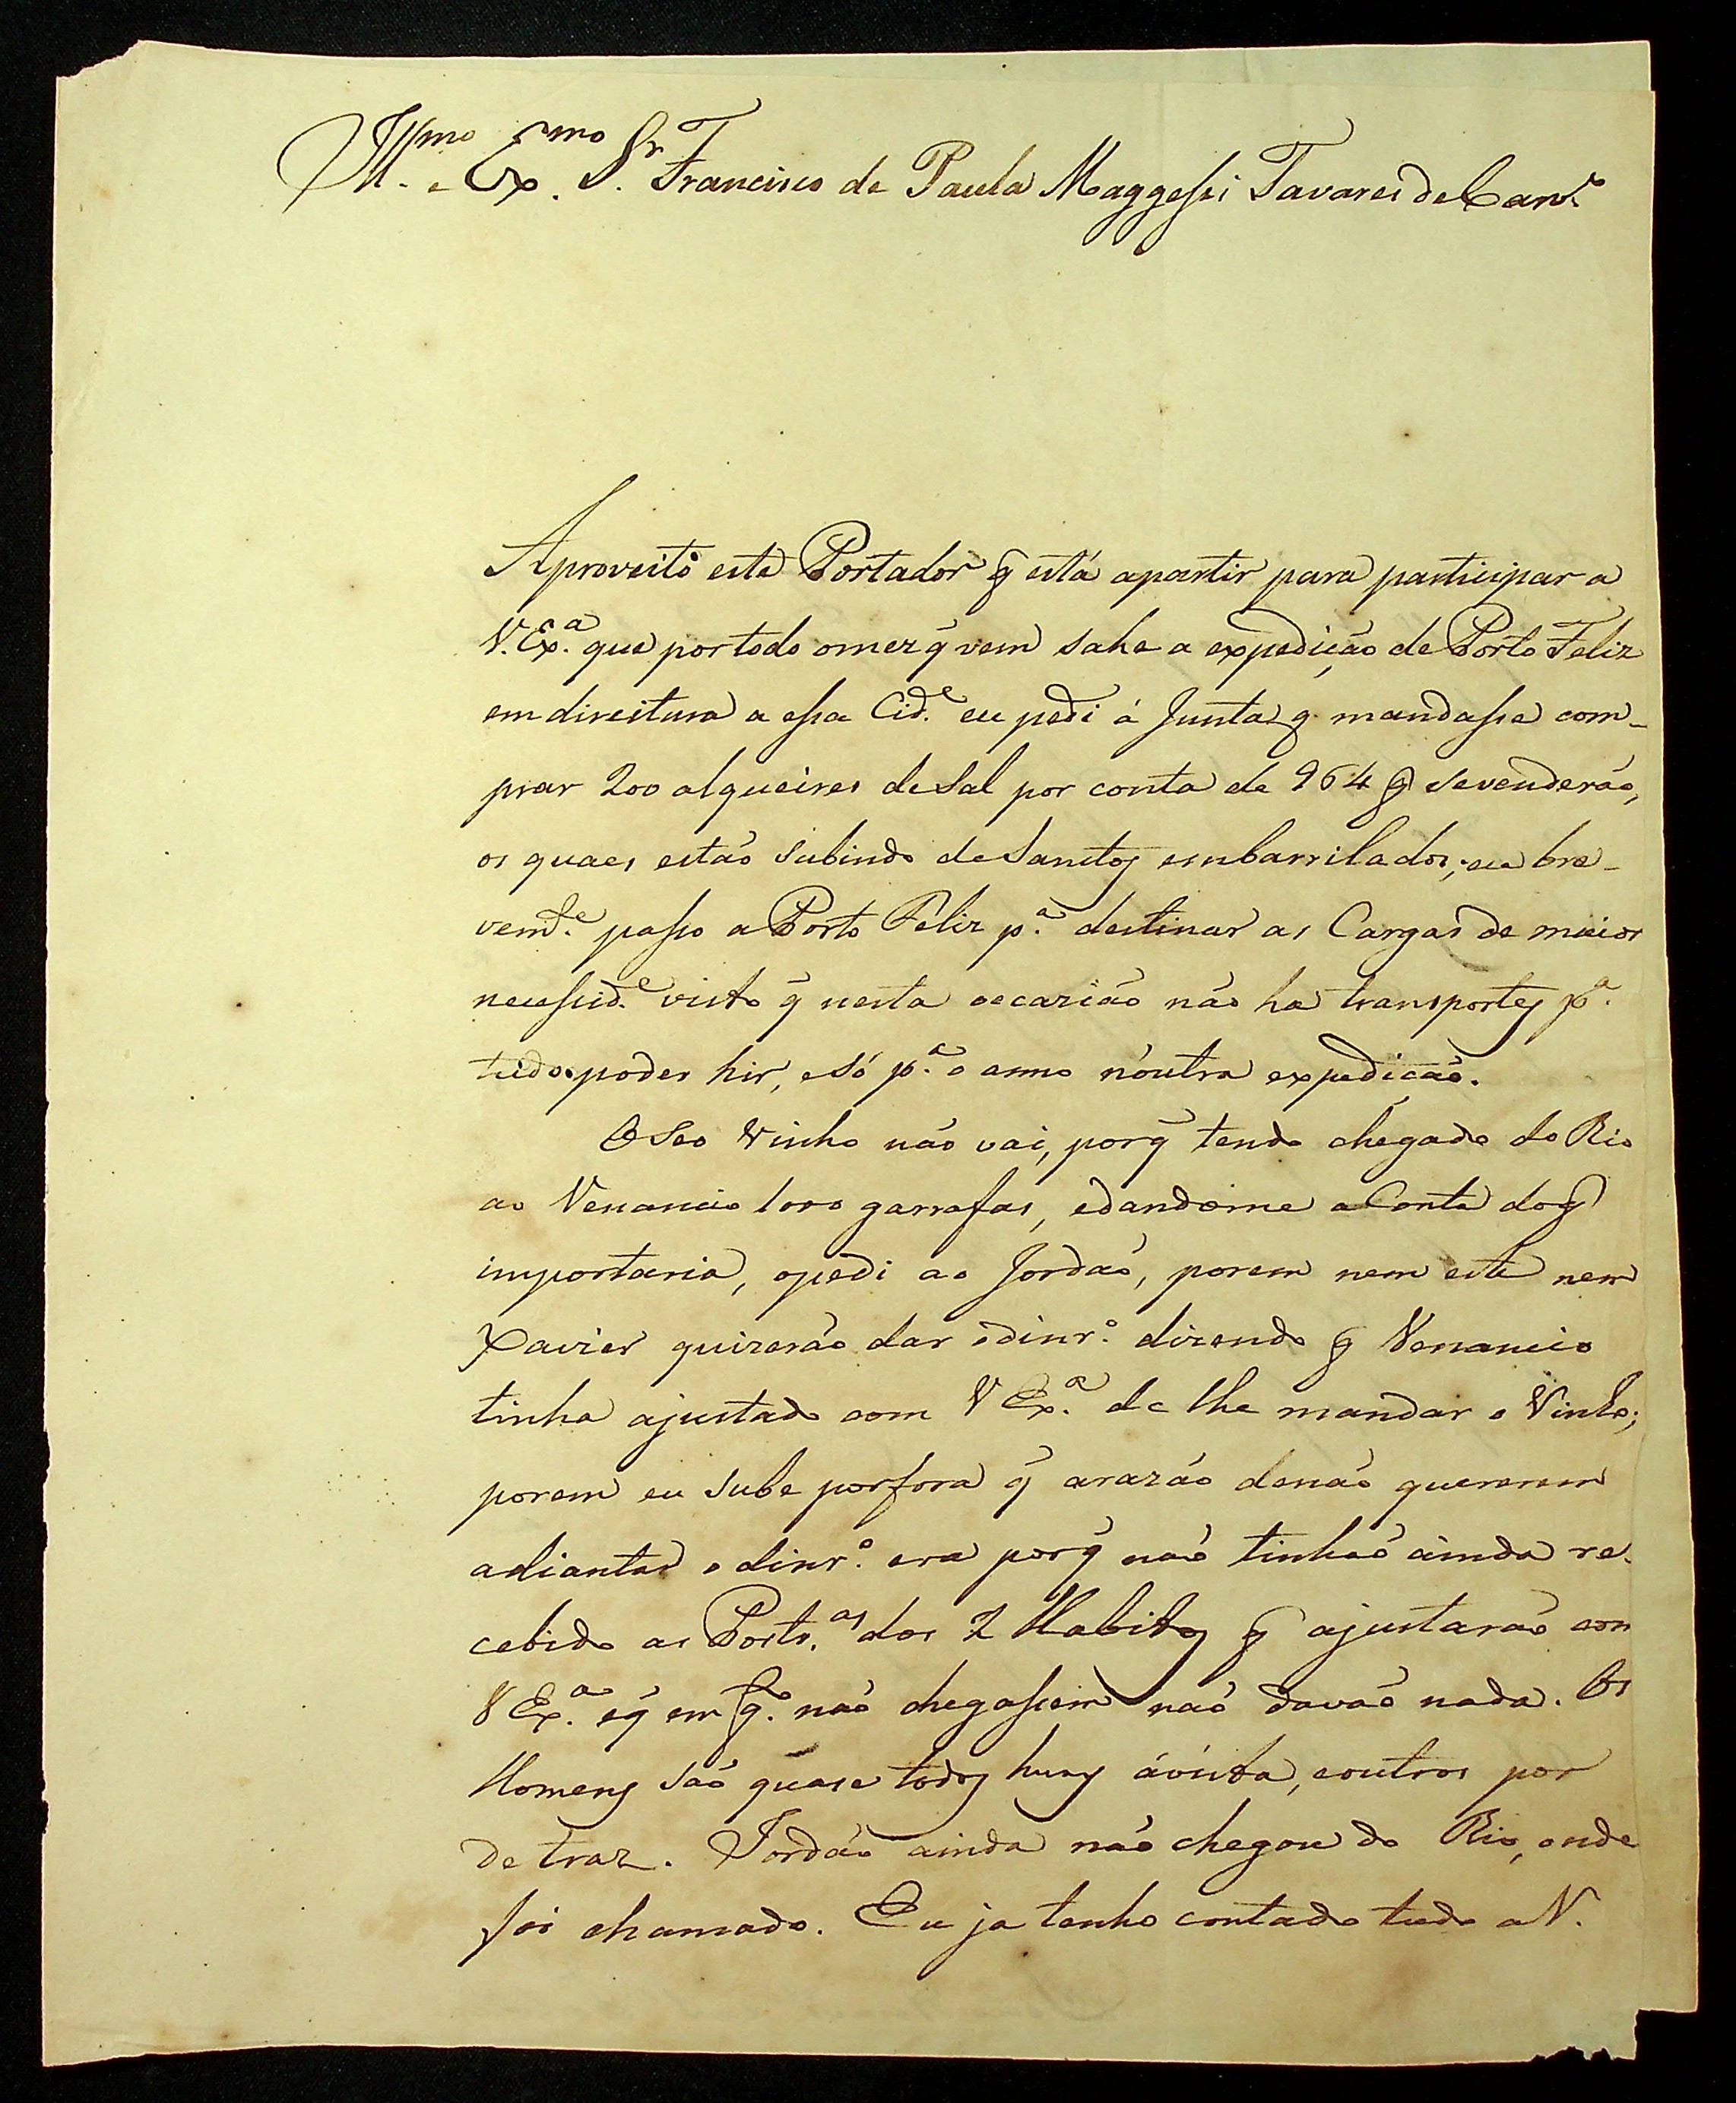 Ill.mo e Ex.mo Sr. Francisco de Paula Maggessi Tavares de Carv.o
Aproveito este Portador q está apartir para participar a
V. Ex.a que por todo o mez q̃ vem sahe a expedição de Porto Feliz
em direitura a essa Cid.e eu pedi á Junta q. mandasse com-
prar 200 alqueires de Sal por conta de 964 q se venderão,
os quaes estão subindo de Santos embarrilados; eu bre-
vem.te passo a Porto Feliz p.a destinar as Cargas de maior
necessid.e visto q̃ nesta occazião não ha transportes p.a
tudo poder hir, e só p.a o anno n'outra expedição.
O Seo Vinho não vai, porq̃ tendo chegado do Rio
ao Venancio 1000 garrafas, e dandome a Conta do q
importaria, o pedi ao Jordão, porem nem este nem
Xavier quizerão dar o dinr.o dizendo q Venancio
tinha ajustado com V Ex.a de lhe mandar o Vinho;
porem eu sube por fora q̃ a razão de não quererem
adiantar o dinr.o era porq̃ naõ tinhaõ ainda re-
cebido as Port.as dos 2 Habitos q ajustarão com
V Ex.a e q̃ em q.to naõ chegassem naõ davaõ nada. Os
Homens saõ quase todos huns á vista, e outros por
de traz. Jordão ainda não chegou do Rio, onde
foi chamado. Eu ja tenho contado tudo a V.